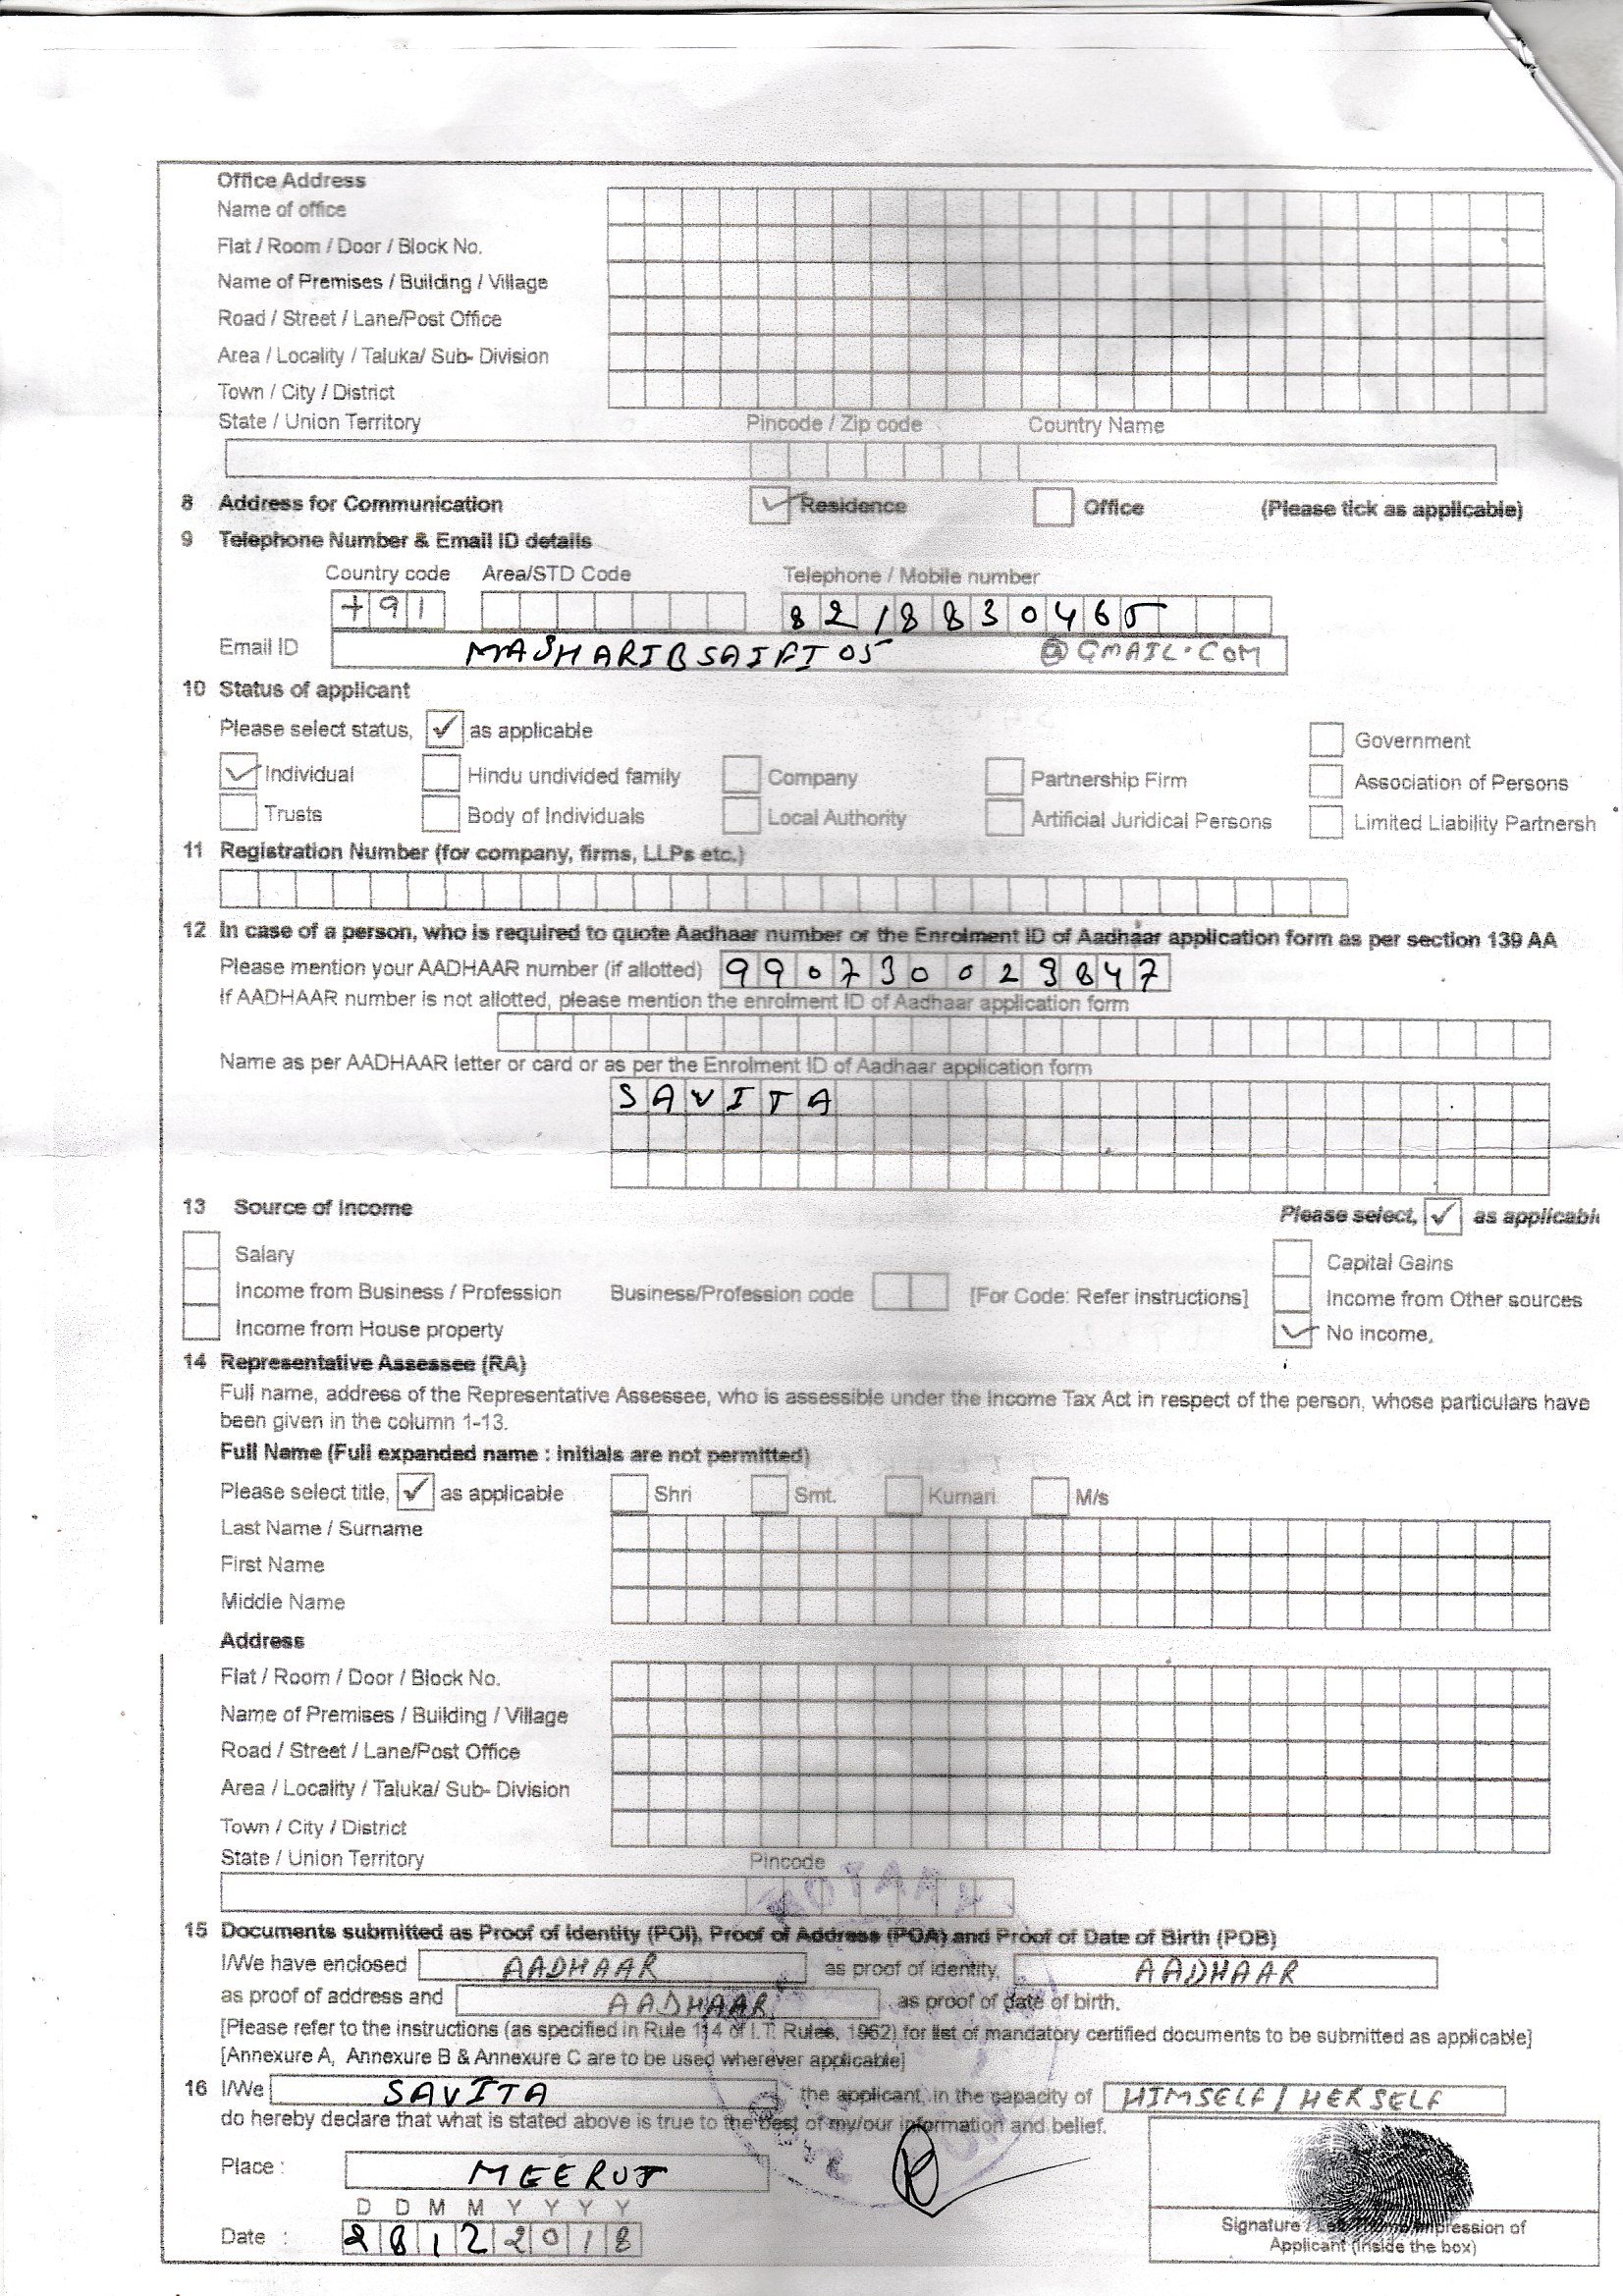 Office Address
Name of office
Flat / Room / Door / Block No.
Name of Premises / Building / Village
Road / Street / Lane/Post Office
Area / Locality / Taluka/ Sub- Division
Town / City / District
State / Union Territory Pincode / Zip code Country Name
8 Address for Communication Residence Office (Please tick as applicable)
9 Telephone Number & Email ID details
Country code Area/STD Code Telephone / Mobile number
+91 8218830465
Email ID MASHARIBSAIFI05 @GMAIL.COM
10 Status of applicant
Please select status, ✓ as applicable Government
Individual Hindu undivided family Company Partnership Firm Association of Persons
Trusts Body of Individuals Local Authority Artificial Juridical Persons Limited Liability Partnersh
11 Registration Number (for company, firms, LLPs etc.)
12 In case of a person, who is required to quote Aadhaar number or the Enrolment ID of Aadhaar application form as per section 139 AA
Please mention your AADHAAR number (if allotted) 990730023847
If AADHAAR number is not allotted, please mention the enrolment ID of Aadhaar application form
Name as per AADHAAR letter or card or as per the Enrolment ID of Aadhaar application form
SAVITA
13 Source of Income Please select, ✓ as applicable
Salary Capital Gains
Income from Business / Profession Business/Profession code [For Code: Refer instructions] Income from Other sources
Income from House property No income,
14 Representative Assessee (RA)
Full name, address of the Representative Assessee, who is assessible under the Income Tax Act in respect of the person, whose particulars have
been given in the column 1-13.
Full Name (Full expanded name : initials are not permitted)
Please select title, ✓ as applicable Shri Smt. Kumari M/s
Last Name / Surname
First Name
Middle Name
Address
Flat / Room / Door / Block No.
Name of Premises / Building / Village
Road / Street / Lane/Post Office
Area / Locality / Taluka/ Sub- Division
Town / City / District
State / Union Territory Pincode
NOTARY
15 Documents submitted as Proof of Identity (POI), Proof of Address (POA) and Proof of Date of Birth (POB)
I/We have enclosed AADHAAR as proof of identity, AADHAAR
as proof of address and AADHAAR as proof of date of birth.
[Please refer to the instructions (as specified in Rule 114 of I.T. Rules, 1962) for list of mandatory certified documents to be submitted as applicable]
[Annexure A, Annexure B & Annexure C are to be used wherever applicable]
16 I/We SAVITA the applicant, in the capacity of HIMSELF/HERSELF
do hereby declare that what is stated above is true to the best of my/our information and belief.
Place : MEERUT
D D M M Y Y Y Y
Date : 28122018
Signature / Left Thumb Impression of
Applicant (inside the box)